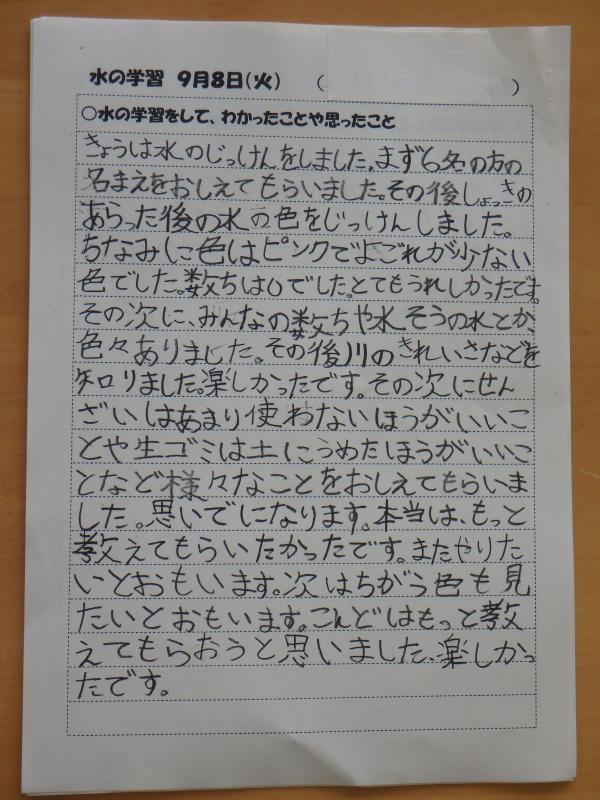 水の学習 9月8日(火) ( )
○水の学習をして、わかったことや思ったこと
きょうは水のじっけんをしました。まず6名の方の
名まえをおしえてもらいました。その後しょっきの
あらった後の水の色をじっけんしました。
ちなみに色はピンクでよごれが少ない
色でした。数ちは0でした。とてもうれしかったです。
その次に、みんなの数ちや水そうの水とか、
色々ありました。その後川のきれいさなどを
知りました。楽しかったです。その次にせん
ざいはあまり使わないほうがいいこ
とや生ゴミは土にうめたほうがいいこ
となど様々なことをおしえてもらいま
した。思いでになります。本当は、もっと
教えてもらいたかったです。またやりた
いとおもいます。次はちがう色も見
たいとおもいます。こんどはもっと教
えてもらおうと思いました、楽しかっ
たです。